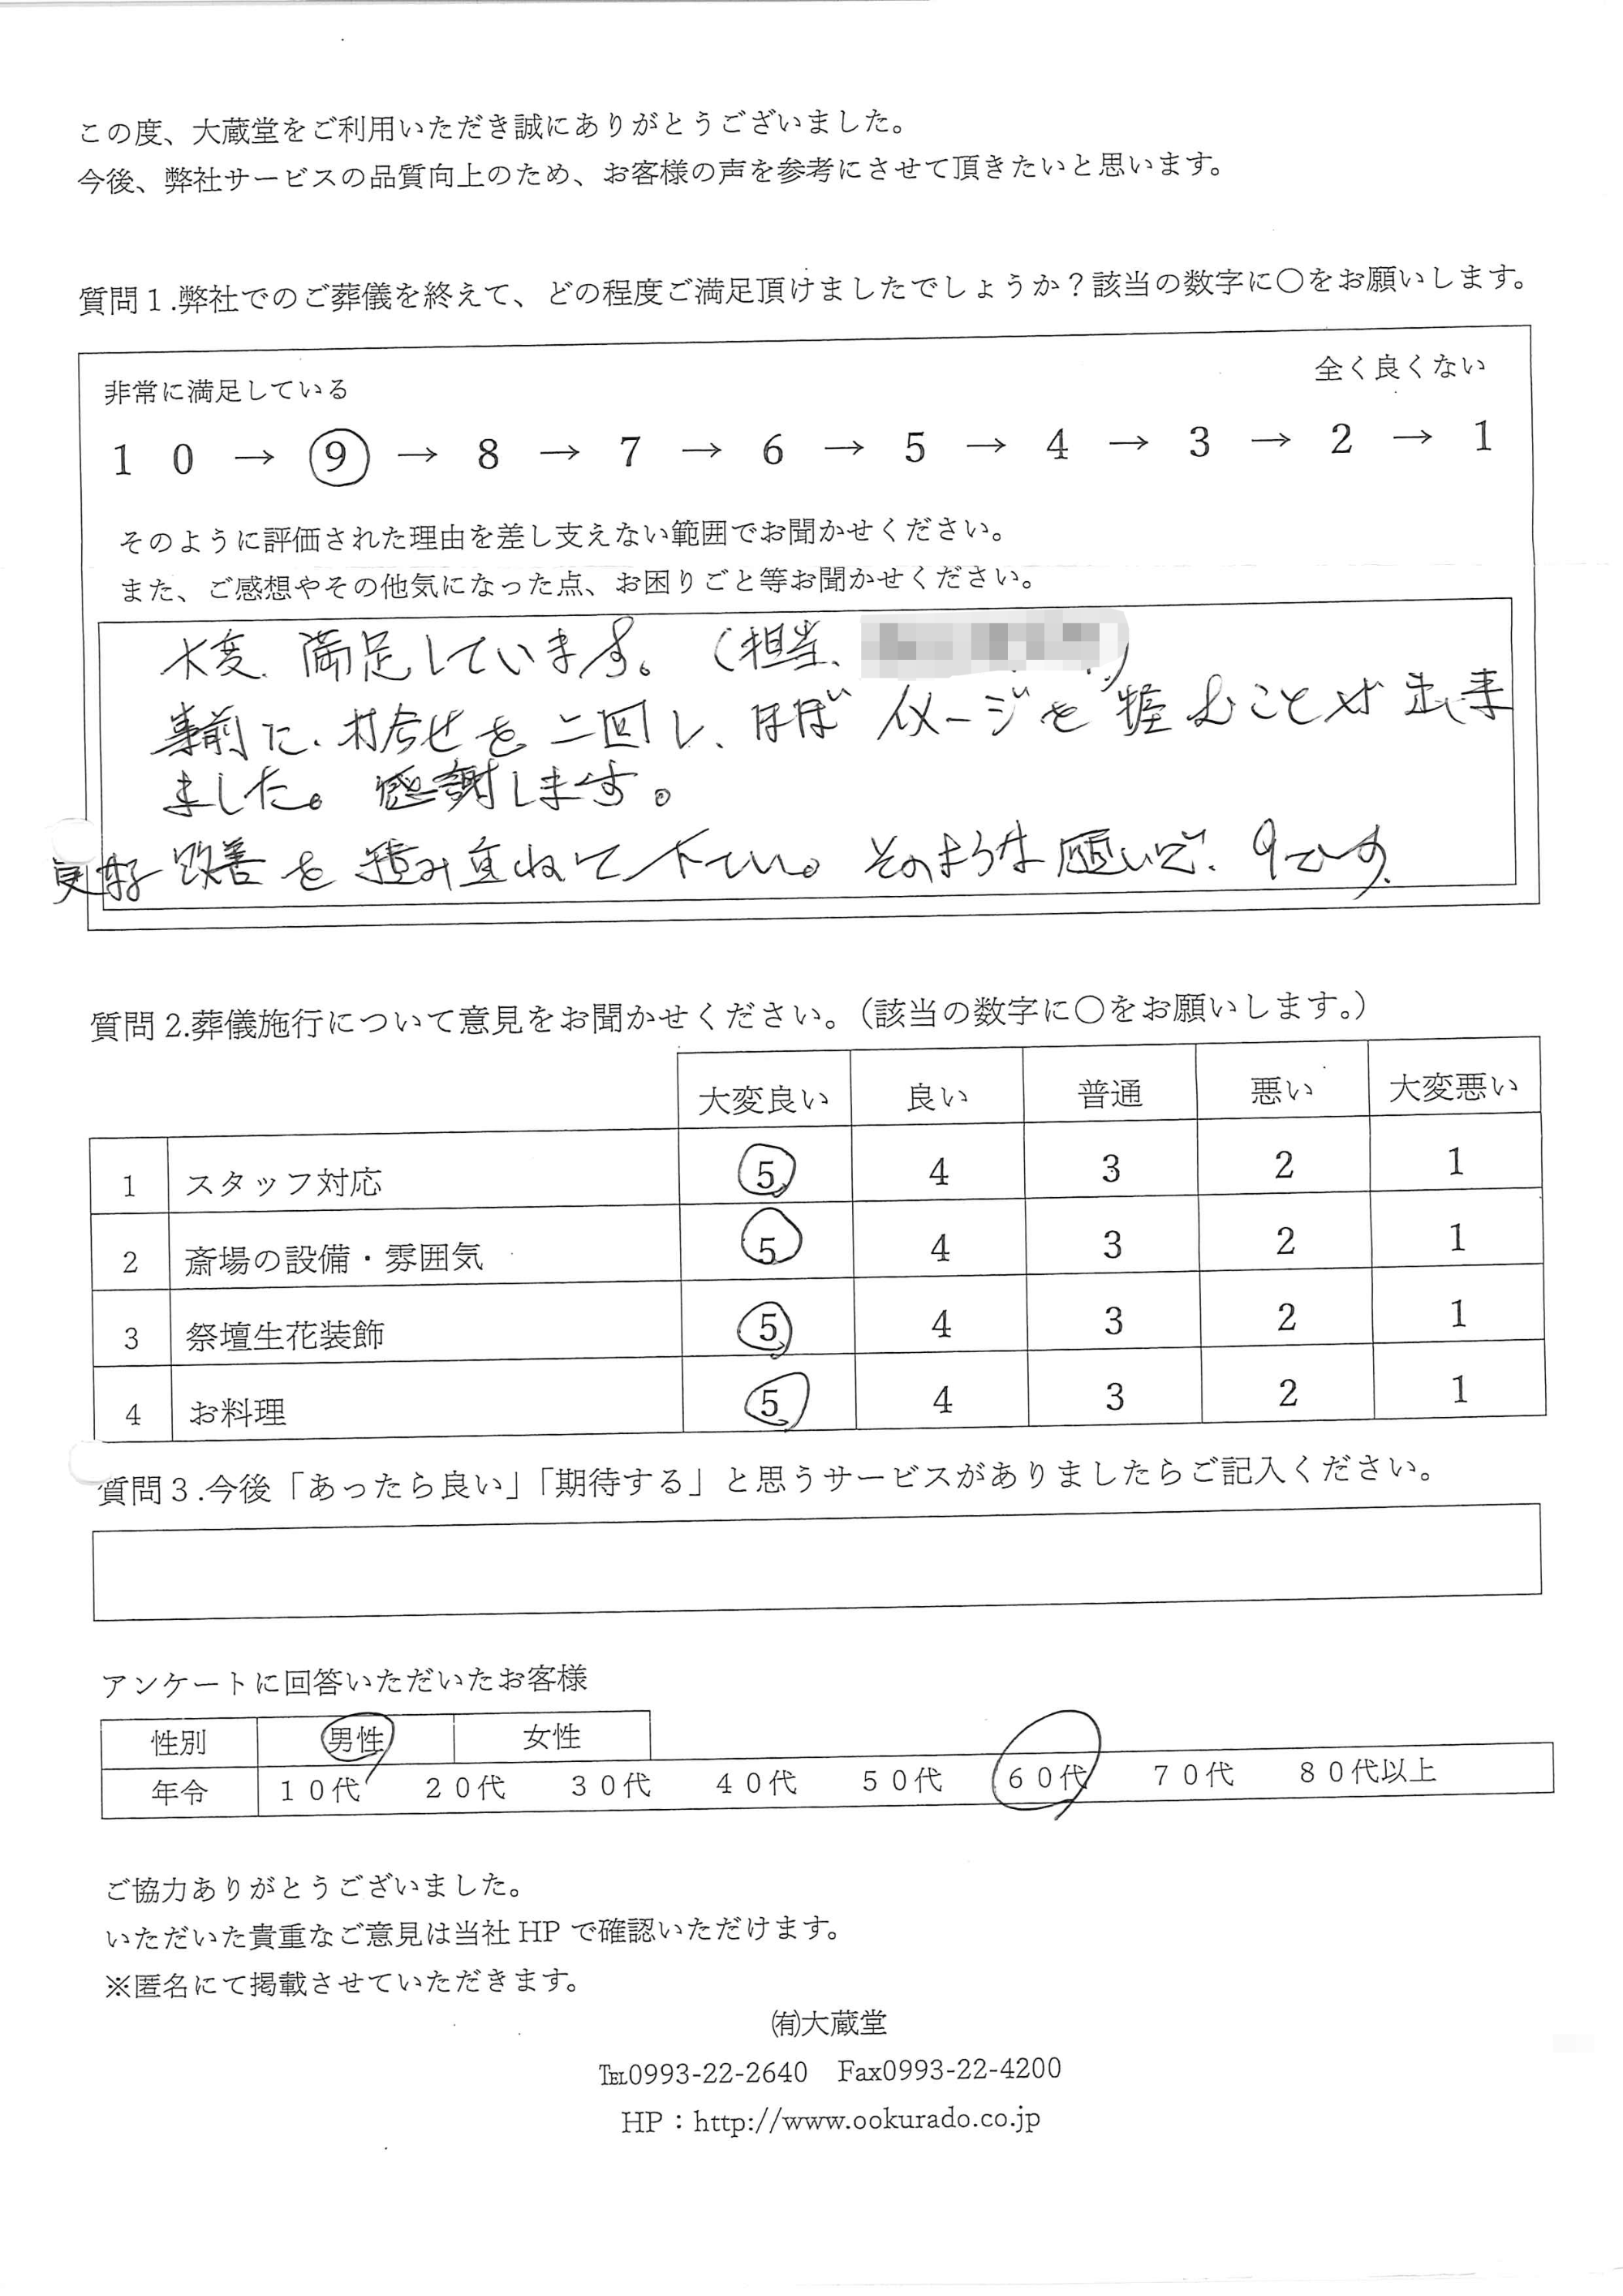 この度、大蔵堂をご利用いただき誠にありがとうございました。
今後、弊社サービスの品質向上のため、お客様の声を参考にさせて頂きたいと思います。
質問１.弊社でのご葬儀を終えて、どの程度ご満足頂けましたでしょうか？該当の数字に〇をお願いします。
非常に満足している 全く良くない
１０ → 9 → 8 → 7 → 6 → 5 → 4 → 3 → 2 → 1
そのように評価された理由を差し支えない範囲でお聞かせください。
また、ご感想やその他気になった点、お困りごと等お聞かせください。
大変、満足しています。（担当、 ）
事前に、打合せを二回し、ほぼイメージを掴むことが出来
ました。感謝します。
更なる改善を積み重ねて下さい。そのような願いで、9です。
質問2.葬儀施行について意見をお聞かせください。（該当の数字に〇をお願いします。）
大変良い 良い 普通 悪い 大変悪い
1 スタッフ対応 5 4 3 2 1
2 斎場の設備・雰囲気 5 4 3 2 1
3 祭壇生花装飾 5 4 3 2 1
4 お料理 5 4 3 2 1
質問３.今後「あったら良い」「期待する」と思うサービスがありましたらご記入ください。
アンケートに回答いただいたお客様
性別 男性 女性
年令 １０代 ２０代 ３０代 ４０代 ５０代 ６０代 ７０代 ８０代以上
ご協力ありがとうございました。
いただいた貴重なご意見は当社 HP で確認いただけます。
※匿名にて掲載させていただきます。
㈲大蔵堂
℡0993-22-2640 Fax0993-22-4200
HP：http://www.ookurado.co.jp